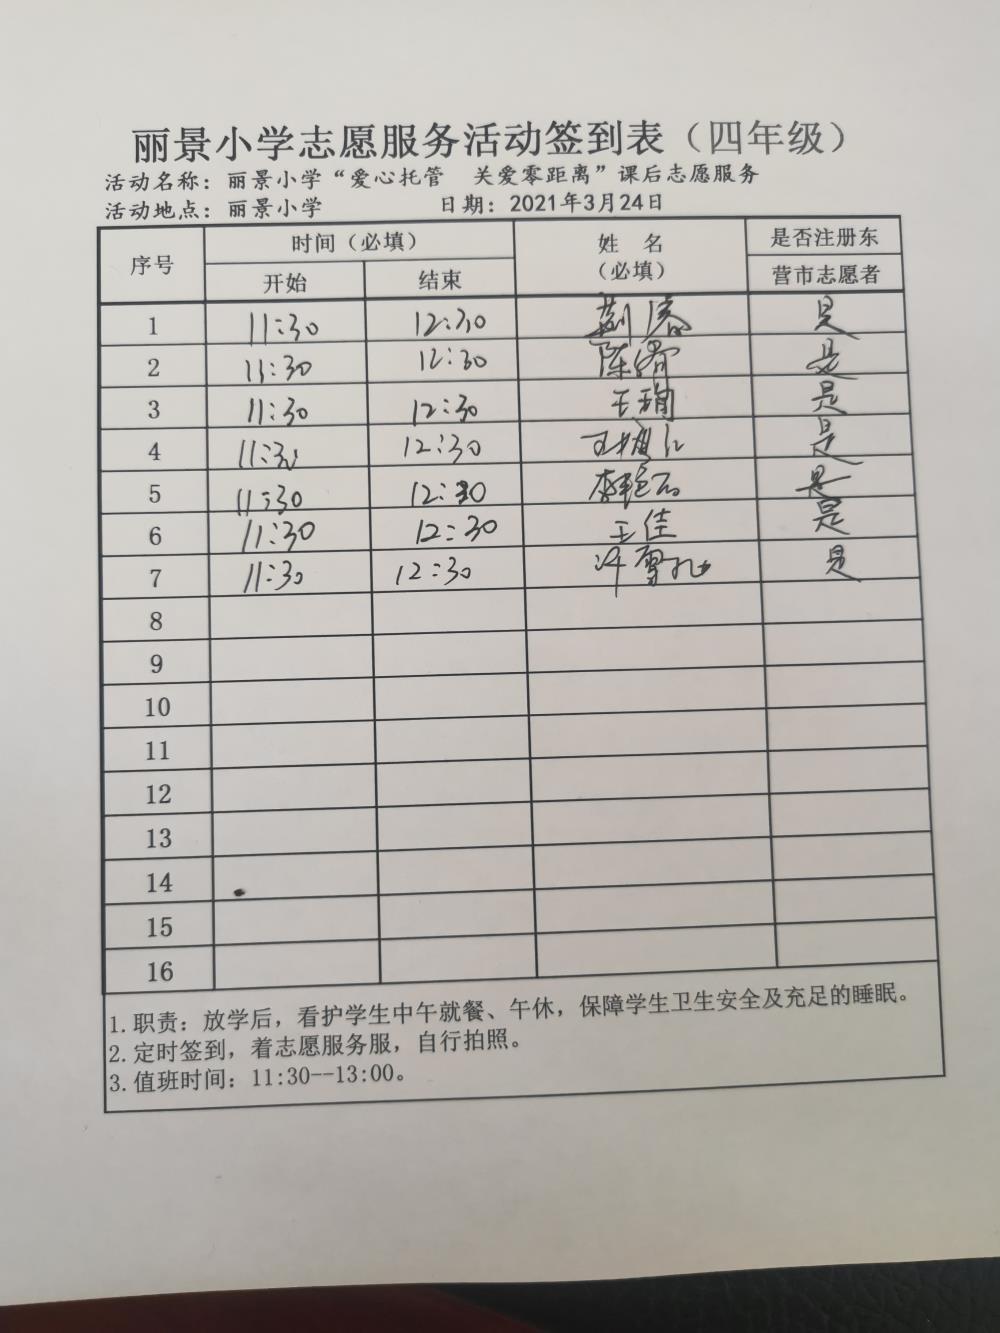 丽景小学志愿服务活动签到表（四年级）
活动名称：丽景小学“爱心托管 关爱零距离”课后志愿服务
活动地点：丽景小学 日期：2021年3月24日
序号 时间（必填） 姓 名 （必填） 是否注册东营市志愿者
开始 结束
1 11:30 12:30 是
2 11:30 12:30 陈 是
3 11:30 12:30 王 是
4 11:30 12:30 王 是
5 11:30 12:30 李艳 是
6 11:30 12:30 王佳 是
7 11:30 12:30 许雪 是
8
9
10
11
12
13
14
15
16
1.职责：放学后，看护学生中午就餐、午休，保障学生卫生安全及充足的睡眠。
2.定时签到，着志愿服务服，自行拍照。
3.值班时间：11:30--13:00。